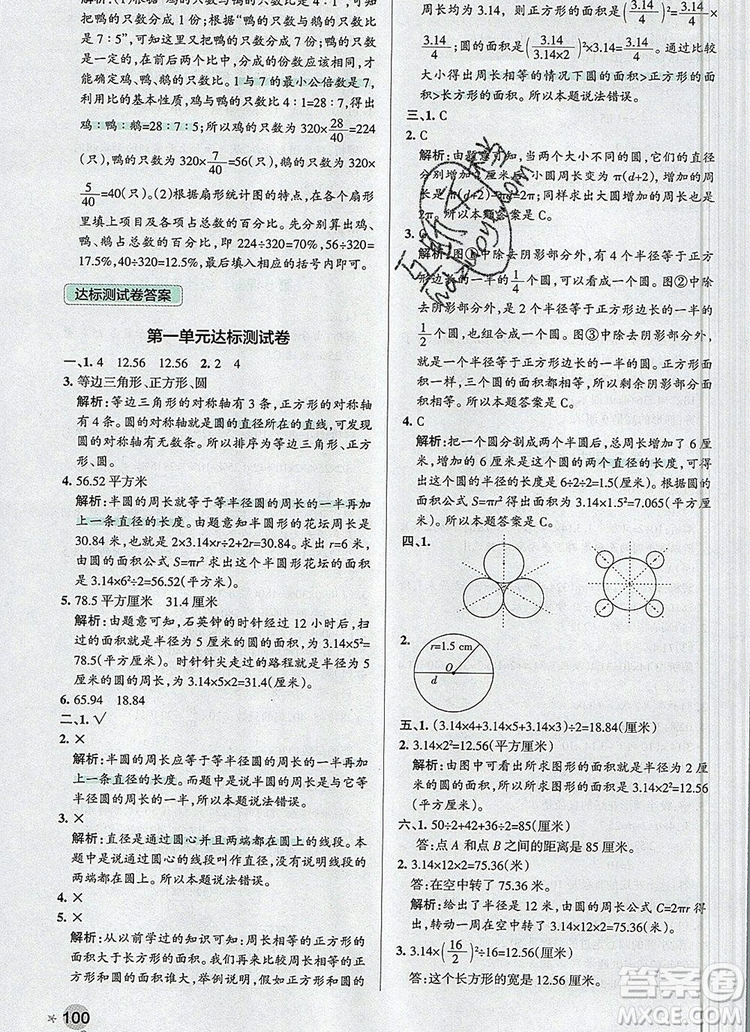 数的比是一定的，根据“鸡的只数与鸭的只数比
是7∶5”，可知又把鸭的只数分成7份，鹅的只数
把鸭的只数产生7份，鸡、
才能确定鸡、鸭、鹅的只数比。1与7的最小公倍数是7，
利用比的基本性质，鸡的只数与鸭的只数比4∶1=28∶7，得出
鸡∶鸭∶鹅=28∶7∶5；所以鸡的只数320×28/40=224
(只)，鸭的只数320×7/40=56(只)，鹅的只数320×
5/40=40(只)。(2)根据扇形统计图的特点，在各扇形
内填出各项占总数的百分比。先分别算出鸡、
鸭、鹅占总数的百分比。224÷320=70%，56÷320=
17.5%，40÷320=12.5%，再填入相应的括号内即可。
达标测试卷答案
第一单元达标测试卷
一、1.4 12.56 12.56 2.2 4
3. 等边三角形、正方形、圆
解析：等边三角形的对称轴有3条，正方形的对称轴
有4条。圆的直径所在的直线，可发现
圆的对称轴有无数条。所以排序为等边三角形、正方
形、圆。
4. 56.52平方米
解析：半圆的周长就等于等半径圆的周长的一半再加
上一条直径的长度。由题意知半圆形的花坛周长是
30.84米，也就是2×3.14r÷2+2r=30.84。求出r=6米，
由圆的面积公式S=πr²求出这个半圆形花坛的面积
3.14×6²÷2=56.52(平方米)。
5. 78.5平方厘米 31.4厘米
解析：由题意可知，石英钟的时针经过12小时后，扫
过的面积就是半径为5厘米的圆的面积，3.14×5²=
78.5(平方厘米)。时针针尖走过的路程就是半径为5
厘米的圆的周长，为3.14×5×2=31.4(厘米)。
6. 65.94 18.84
二、1.√
2. ×
解析：半圆的周长应等于等半径圆的周长的一半再加
上一条直径的长度。而题中是说半圆的周长是与它等
半径的圆的周长的一半，所以本题说法错误。
3. ×
解析：直径是通过圆心并且两端都在圆上的线段。本
题中是说通过圆心的线段叫作直径，没有说明线段的
两端都在圆上，所以本题说法错误。
4. ×
解析：从以前学过的知识可知：周长相等的正方形的
面积大于长方形的面积。只要再比较周长相等的正方
形和圆的面积谁大，举例说明，假如正方形和圆的
* 100
周长均为3.14，则正方形的面积是(3.14/4)²=3.14/4×
3.14/4，圆的面积是(3.14/3.14×2)²×3.14=3.14/4。通过比较
可以得出周长相等的情况下圆的面积>正方形的面
积>长方形的面积。所以本题说法错误。
三、1. C
2. C
解析：由题意可知，当两个大小不同的圆，它们的直径
分别增加2厘米后，小圆增加的周
长是π(d+2)-πd=2π；同样求出大圆增加的周长也
是2π。所以本题答案是C。
3. C
解析：图①中除去阴影部分外，有4个半径等于正
方形边长的一半的1/4个圆。图②中除去阴影部分外，
有2个直径等于正方形的边长的
1/2个圆，也组成一个圆。图③中除去阴影部分外，有
4个半径等于正方形边长的一半的圆。正方形面积相
同，这些圆的面积都相等，所以剩余阴影部分面积也
相等。所以本题答案是C。
4. C
解析：把一个圆分割成两个半圆后，周长增加了6厘
米，增加的长度就是圆的两个直径的长度，可以得出，
这个圆的半径是6÷2÷2=1.5(厘米)，根据圆的
面积公式S=πr²求出面积3.14×1.5²=7.065(平方厘
米)。所以本题答案是C。
四、1.
2.
r=1.5 cm
O
d
五、1. (3.14×4+3.14×5+3.14×3)÷2=18.84(厘米)
2. 3.14×2²=12.56(平方厘米)
解析：由图中可以看出所求图形的面积就是半径为2
厘米的圆的面积，所以所求图形的面积为3.14×2²=
12.56(平方厘米)。
六、1. 50÷2+42+36÷2=85(厘米)
答：点A和点B之间的距离是85厘米。
2. 3.14×12×2=75.36(米)
答：在空中转了75.36米。
解析：给出了半径是12米，由圆的周长公式C=2πr得
出，转动一周用在空中转了3.14×12×2=75.36(米)。
3. 3.14×(16/2)²÷16=12.56(厘米)
答：这个长方形的宽是12.56厘米。
答案圈
MXQE.COM